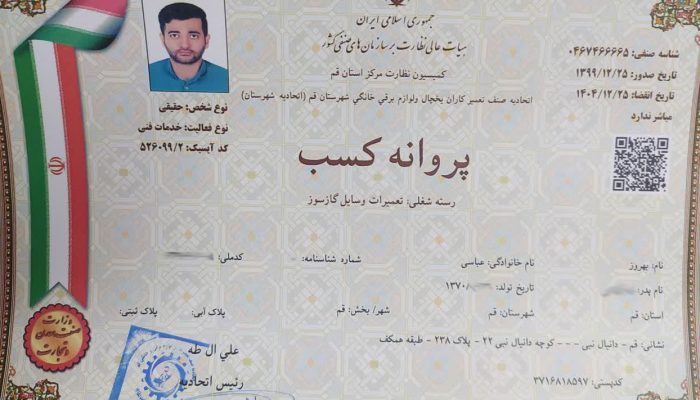 جمهوری اسلامی ایران
هیات عالی نظارت بر سازمان های صنفی کشور
کمیسیون نظارت مرکز استان قم
اتحادیه صنف تعمیر کاران یخچال ولوازم برقی خانگی شهرستان قم (اتحادیه شهرستان)
شناسه صنفی: ۰۴۶۷۴۶۶۶۶۵
تاریخ صدور: ۱۳۹۹/۱۲/۲۵
تاریخ انقضا: ۱۴۰۴/۱۲/۲۵
مباشر ندارد
نوع شخص: حقیقی
نوع فعالیت: خدمات فنی
کد آیسیک: ۵۲۶۰۹۹/۲
پروانه کسب
رسته شغلی: تعمیرات وسایل گازسوز
نام: بهروز نام خانوادگی: عباسی شماره شناسنامه: کدملی:
نام پدر: تاریخ تولد: ۱۳۷۰/
استان: قم شهرستان: قم شهر/ بخش: قم پلاک آبی: پلاک ثبتی:
نشانی: قم - دانیال نبی - - - کوچه دانیال نبی ۲۲ - پلاک ۲۳۸ - طبقه همکف
کدپستی: ۳۷۱۶۸۱۸۵۹۷
علی ال طه
رئیس اتحادیه
وزارت
صنعت، معدن
و تجارت